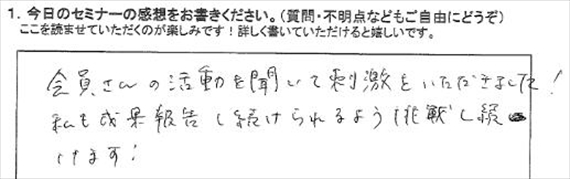 1. 今日のセミナーの感想をお書きください。(質問・不明点などもご自由にどうぞ)
ここを読ませていただくのが楽しみです!詳しく書いていただけると嬉しいです。
会員さんの活動を聞いて刺激をいただきました!
私も成果報告し続けられるよう挑戦し続
けます!